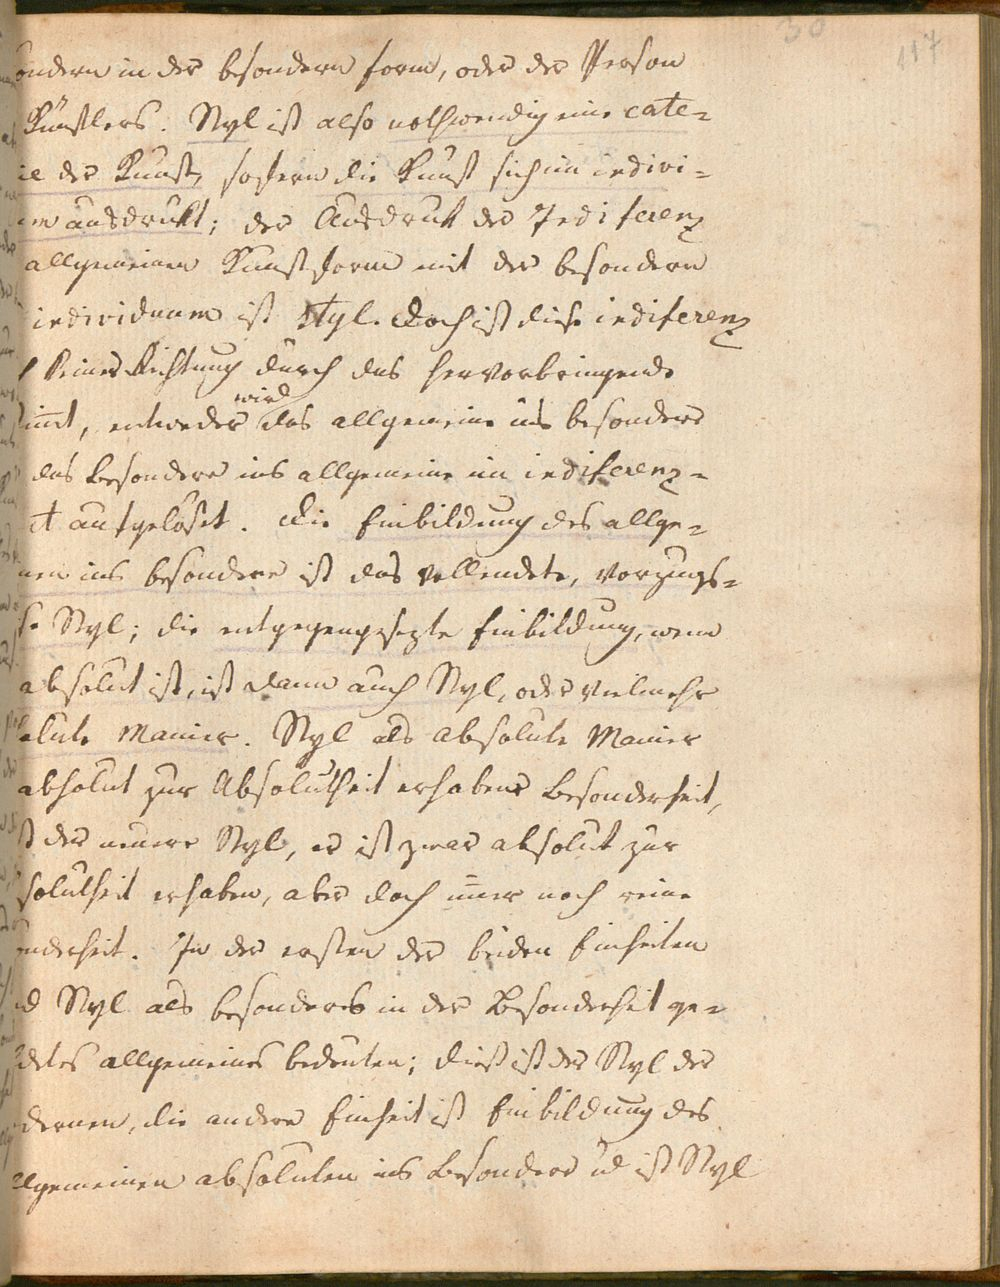 30
117
ondern in der besondern form, oder der Person
Künstlers. Styl ist also nothwendig eine cate-
ie der Kunst, sofern die Kunst sich im indivi-
um ausdrükt; der Ausdruk der Indiferenz
allgemeinen Kunstform mit der besondern
individuum ist styl. doch ist diese indiferenz
keiner Richtung durch das hervorbringende
imt, entweder wird das allgemeine ins besondere
das besondere ins allgemeine im indiferenz-
ct aufgelöset. die Einbildung des allge-
nen ins besondere ist das vollendete, vorzugs-
se Styl; die entgegengesezte Einbildung, wenn
absolut ist, ist dann auch Styl, oder vielmehr
olute Manier. Styl als absolute Manier
absolut zur Absolutheit erhabene Besonderheit,
st der neuere Styl, er ist zwar absolut zur
solutheit erhaben, aber doch imer noch reine
onderheit. In der ersten der beiden Einheiten
d Styl als besonderes in der Besonderheit ge-
detes allgemeines bedeuten; dieß ist der Styl der
dernen, die andere Einheit ist Einbildung des
llgemeinen absoluten ins Besondere ud ist Styl